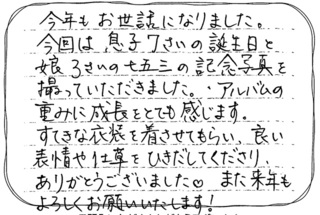 今年もお世話になりました。
今回は息子7さいの誕生日と
娘3さいの七五三の記念写真を
撮っていただきました。・アルバムの
重みに成長をとても感じます。
すてきな衣装を着させてもらい、良い
表情や仕草をひきだしてくださり、
ありがとうございました♡ また来年も
よろしくお願いいたします!